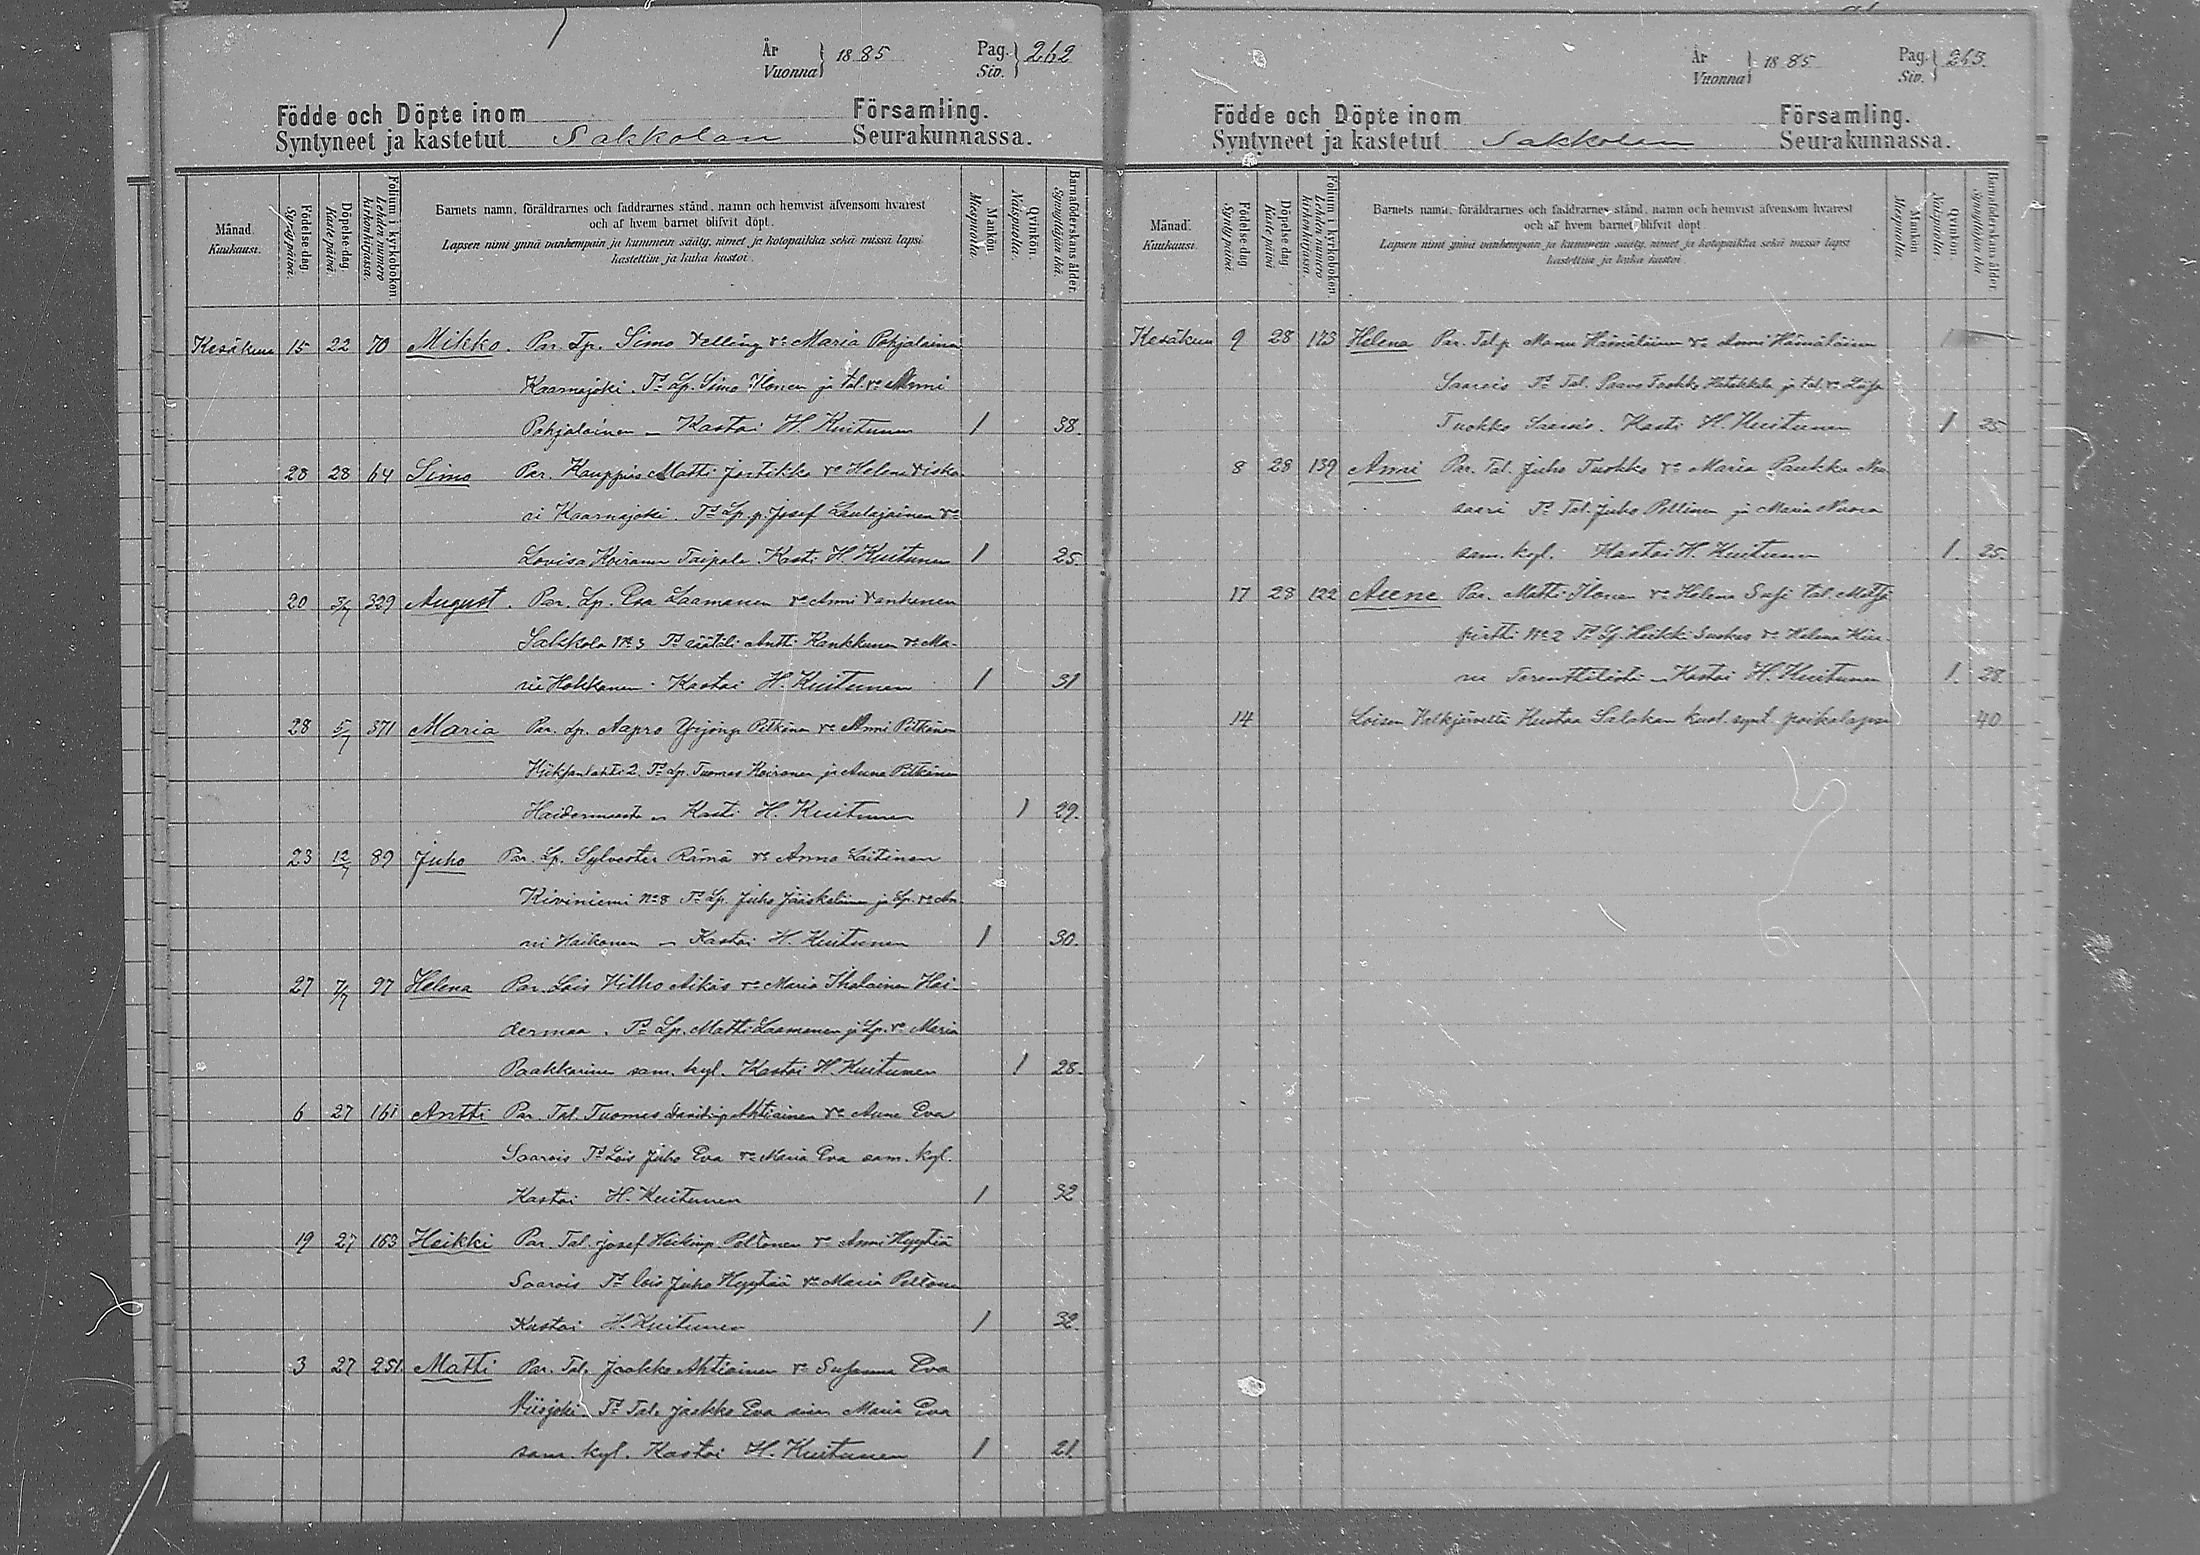 År
Vuonna } 1885
Pag.
Siv. } 262
Födde och Döpte inom Församling.
Syntyneet ja kastetut Sakkolan Seurakunnassa.
Månad.
Kuukausi.
Födelsedag.
Syntypäivä.
Döpelsedag.
Kastepäivä.
Folium i kyrkoboken.
Lehden numero kirkonkirjassa.
Barnets namn, föräldrarnes och faddrarnes stånd, namn och hemvist äfvensom hvarest
och af hvem barnet blifvit döpt.
Lapsen nimi ynnä vanhempain ja kummein sääty, nimet ja kotopaikka sekä missä lapsi
kastettiin ja kuka kastoi.
Mankön.
Miespuolia.
Qvinkön.
Naispuolia.
Barnaföderskans ålder.
Synnyttäjän ikä.
Kesäkuu 15 22 70 Mikko. Par. Lp. Simo Velling vo Maria Pohjalainen
Kaarnajoki. Td Lp. Simo Ilonen ja tal. vo Anni
Pohjalainen – Kastoi H. Kuitunen 1 38.
28 28 64 Simo Par. Kauppias Matti Jortikka vo Helena Viska
ri Kaarnajoki. Td Lp. p. Josef Laulajainen vo
Lovisa Koiranen Taipale. Kasti H. Kuitunen 1 25.
20 3/7 329 August. Par. Lp. Esa Laamanen vo Anni Vankanen
Sakkola No 3 Td räätäli Antti Kankkunen vo Ma-
ria Hakkanen. Kastoi H. Kuitunen 1 31
28 5/7 371 Maria Par. Lp. Aapro Yrjönp. Pitkänen vo Anni Pitkänen
2. Td Lp. Tuomas Koiranen ja Anna Pitkänen
– Kasti H. Kuitunen 1 29.
23 12/7 89 Juho Par. Lp. Sylvester Rämä vo Anna Laitinen
Kiviniemi No 8 Td Lp. Juho Jääskeläinen ja Lp. vo An
ni Haikonen – Kastoi H. Kuitunen 1 30.
27 7/7 97 Helena Par. Lois Vilho Äikäs vo Maria Ihalainen Hai-
dermaa. Td Lp. Matti Laamanen ja Lp. vo Maria
Paakkarinen sam. kyl. Kastoi H. Kuitunen 1 28.
6 27 161 Antti Par. Tal. Tuomas Davidinp. Ahtiainen vo Anna Eva
Saarois Td Lois Juho Eva vo Maria Eva sam. kyl.
Kastoi H. Kuitunen 1 32
19 27 163 Heikki Par. Tal. Josef Heikinp. Peltonen vo Anni Hyytiä
Saarois Td lois Juho Hyytiä vo Maria Peltonen
Kastoi H. Kuitunen 1 32.
3 27 251. Matti Par. Tal. Jaakko Ahtiainen vo Susanna Eva
Viisjoki. Td Tal. Jaakko Eva Maria Eva
sam. kyl. Kastoi H. Kuitunen 1 21.
År
Vuonna } 1885
Pag.
Siv. } 263.
Födde och Döpte inom Församling.
Syntyneet ja kastetut Sakkolan Seurakunnassa.
Månad.
Kuukausi.
Födelsedag.
Syntypäivä.
Döpelsedag.
Kastepäivä.
Folium i kyrkoboken.
Lehden numero kirkonkirjassa.
Barnets namn, föräldrarnes och faddrarnes stånd, namn och hemvist äfvensom hvarest
och af hvem barnet blifvit döpt.
Lapsen nimi ynnä vanhempain ja kummein sääty, nimet ja kotopaikka sekä missä lapsi
kastettiin ja kuka kastoi.
Mankön.
Miespuolia.
Qvinkön.
Naispuolia.
Barnaföderskans ålder.
Synnyttäjän ikä.
Kesäkuu 9 28 173 Helena Par. Tal. p. Manu Hämäläinen vo Anni Hämäläinen
Saarois Td Tal. Paavo Tuokko ja tal. vo Luisa
Tuokko Saarois. Kasti H. Kuitunen 1 25.
8 28 139 Anni Par. Tal. Juho Tuokko vo Maria Paukku
saari Td Tal. Juho Pellinen ja Maria Nuora
sam. kyl. Kastoi H. Kuitunen 1. 25.
17 28 122 Anna Par. Matti Ilonen vo Helena Susi tal. Metsä
pirtti No 2 Td Lp. Heikki vo Helena
– Kastoi H. Kuitunen 1. 28.
14 Loisen Kustaa Salakan kuol. synt. poikalapsi 40